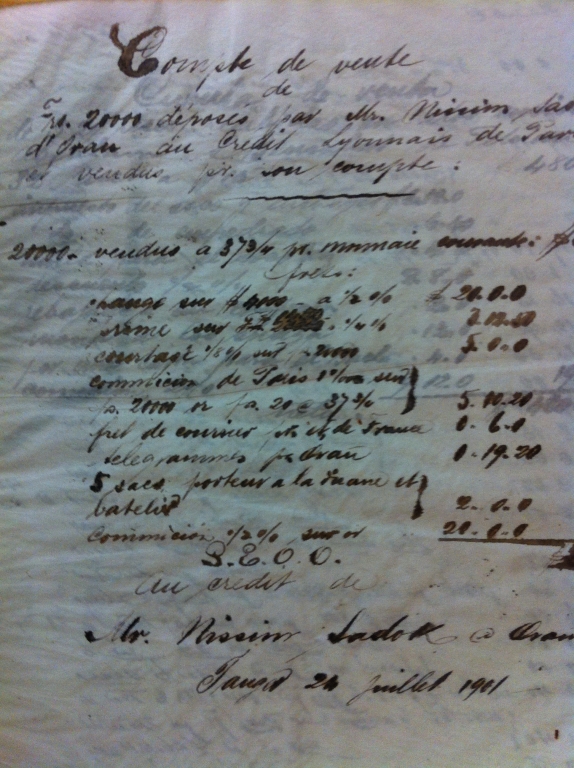 Compte de vente
de
Frs. 20000 déposés par Mr. Nissim Sado
d'Oran au Crédit Lyonnais de Par
et vendus pr. son compte:
20000 - vendus a 37 3/4 pr. monnaie courante: $
frais:
change sur $ 4000 - a 1/2 % $ 20.0.0
prime sur 1/4 %
courtage 1/8 % sur 20000 5.0.0
commicion de Paris sur
fs. 20000 or 20 @ 37 3/4 5.10.20
fret de courier et de France 0.6.0
telegrammes pr Oran 0.19.20
5 sacs, porteur a la Duane et
batelier 2.0.0
commicion 1/2 % sur or 20.0.0
S.E.O.O.
Au credit de
Mr. Nissim Sadok @ Oran
Tanger 24 juillet 1901